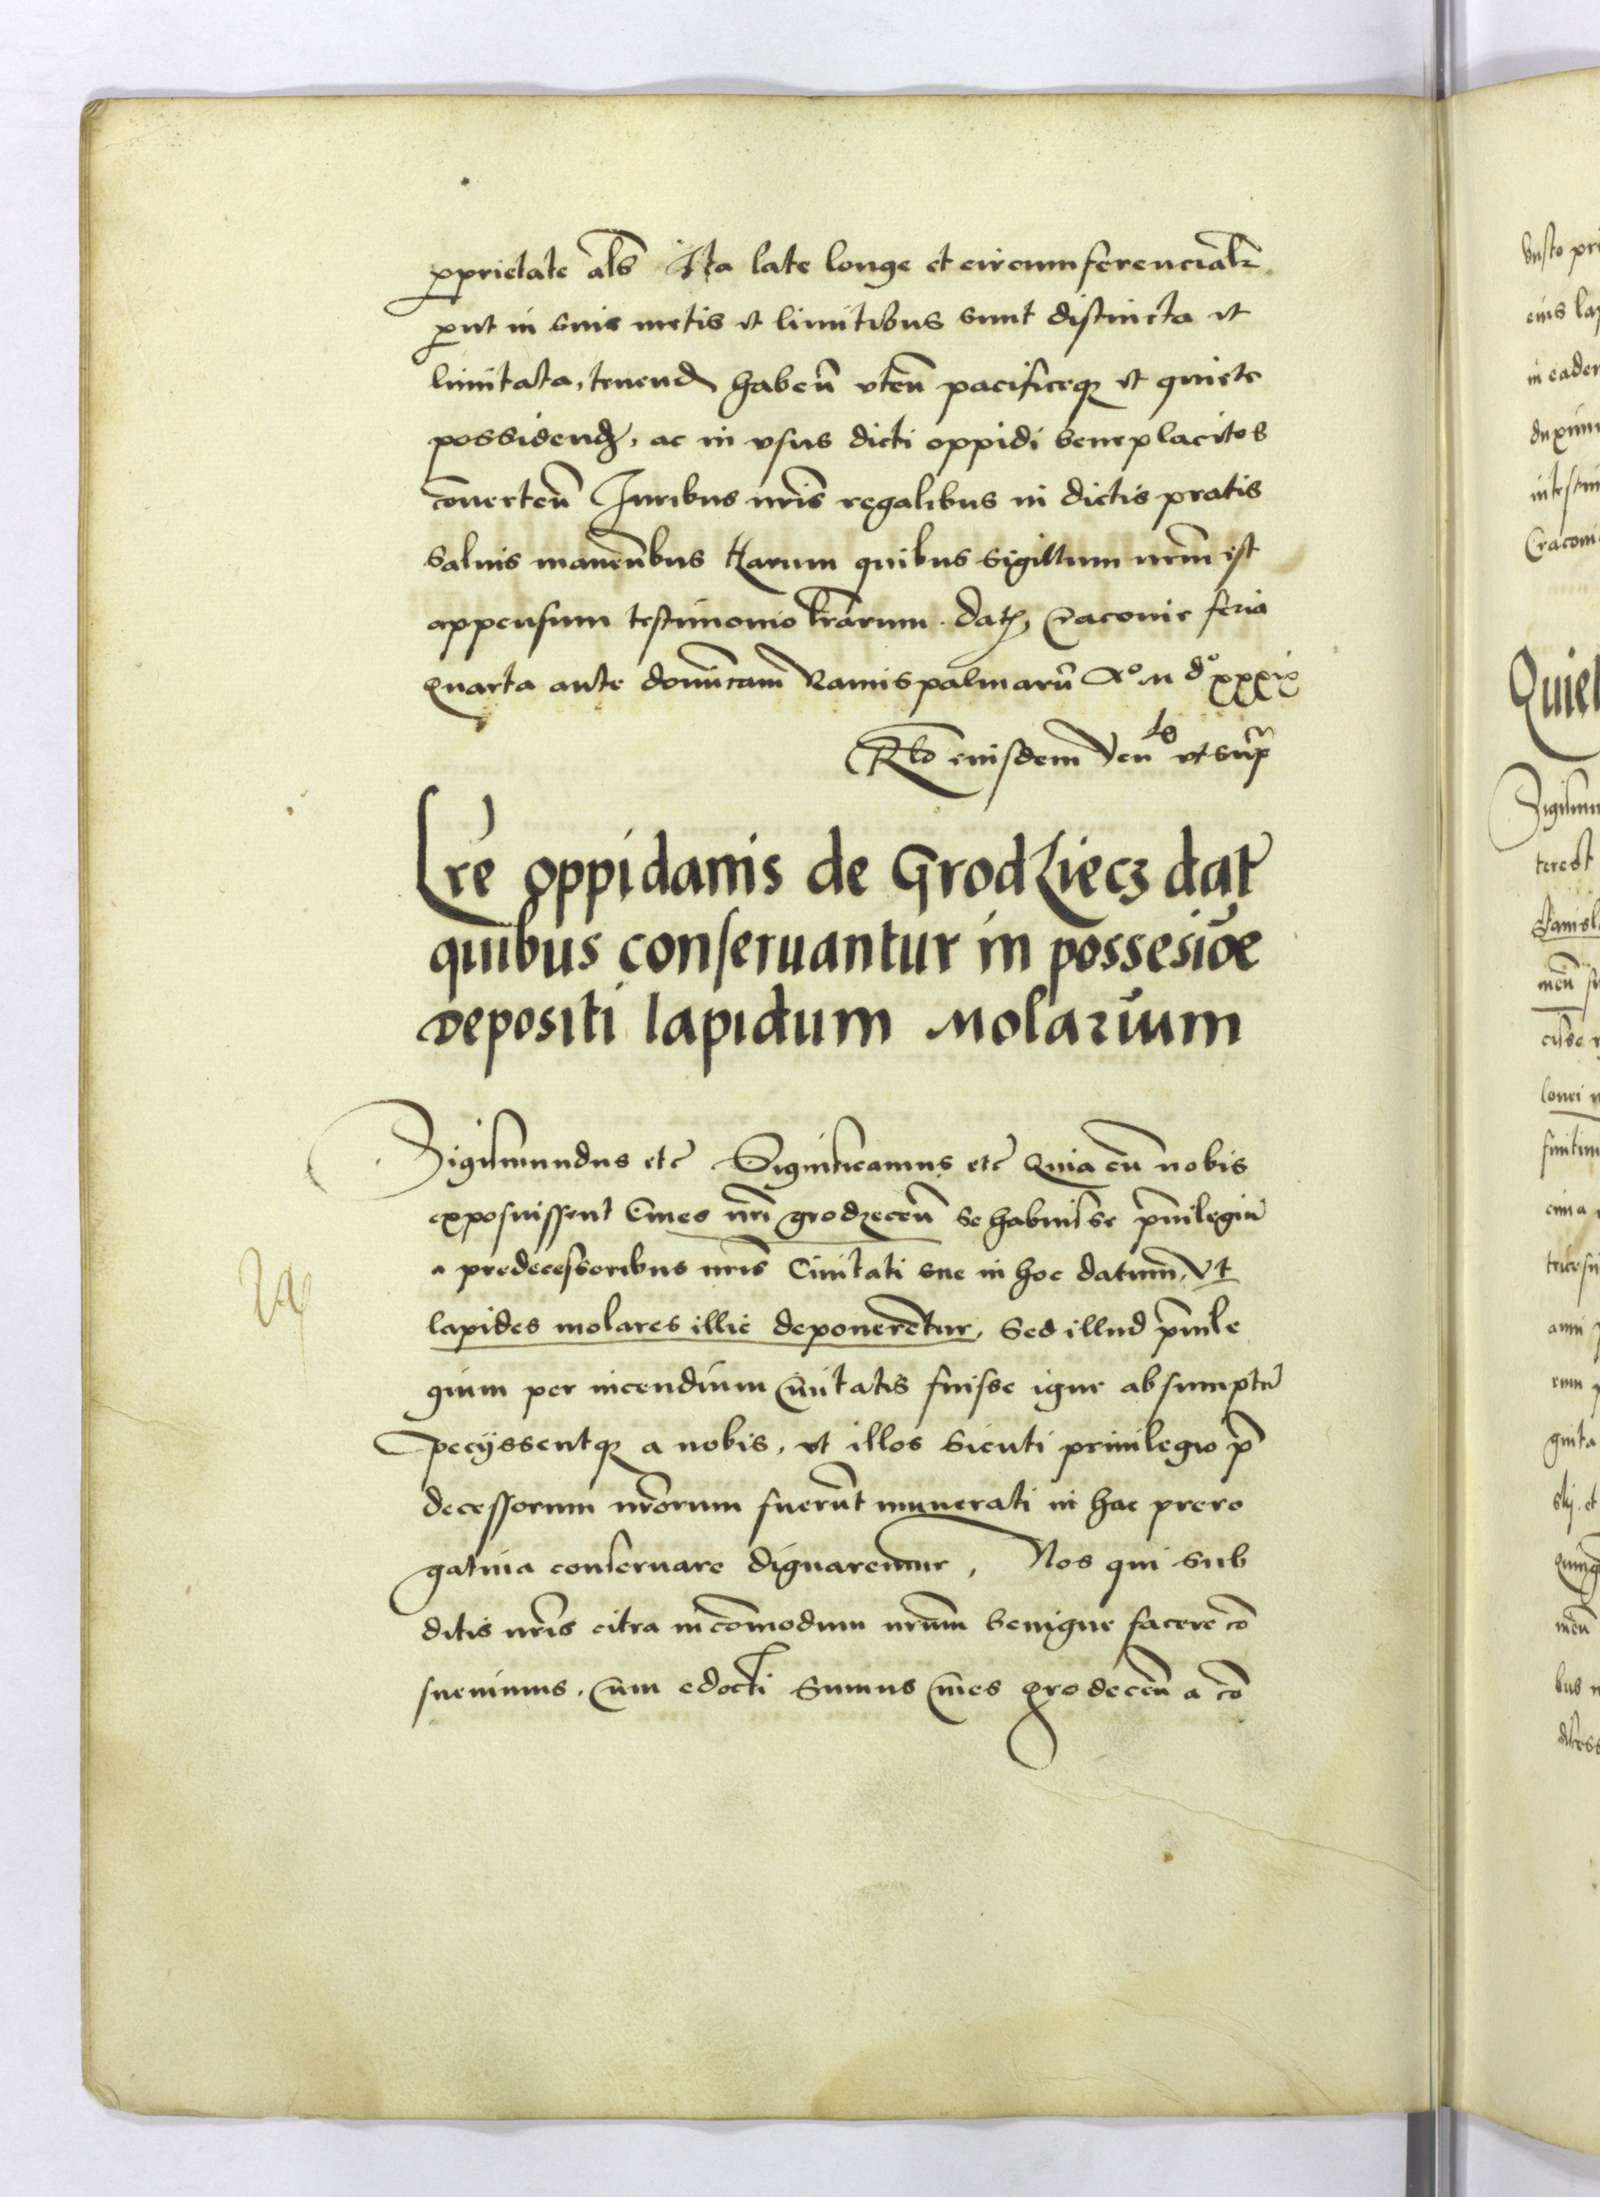 p̱prietate als̄ Ita late longe et circumferencialr̄
ꝓut in suis metis et limitibus sunt distincta et
limitata, tenend habeñ uteñ pacificeqꝫ et quiete
possidendꝫ, ac in usus dicti oppidi beneplacitos
cōuerteñ Iuribus nr̄is regalibus in dictis pratis
saluis maneñbus Harum quibus sigillum nr̄m est
appensum testimonio lr̄arum. datꝫ Cracouie feria
Quarta ante dominīcam Ramispalmarū Aº M dº xxxix
Rlō euisdem Ven lis ut supꝛ
Lr̄e oppidanis de Grodziecz dat
quibus conseruantur in possesiōe
depositi lapidum Molarium
Sigismundus etc̄ Significamus etc̄ Quia cū nobis
exposuissent Ciues nr̄i grodzeceñ se habuisse p̄uilegiū
a predecessoribus nr̄is Ciuitati sue in hoc datum, ut
lapides molares illic deponerētur, Sed illud p̄uile
gium per incendium Ciuitatis fuisse igne absumptū
peciissentqꝫ a nobis, ut illos sicuti priuilegio p̄
decessorum nr̄orum fuerūt munerati in hac prero
gatiua conseruare dignaremur, Nos qui sub
ditis nr̄is citra incōmodum nr̄um benigne facere cō
sueuimus, Cum edocti sumus Ciues grodeceñ a cō